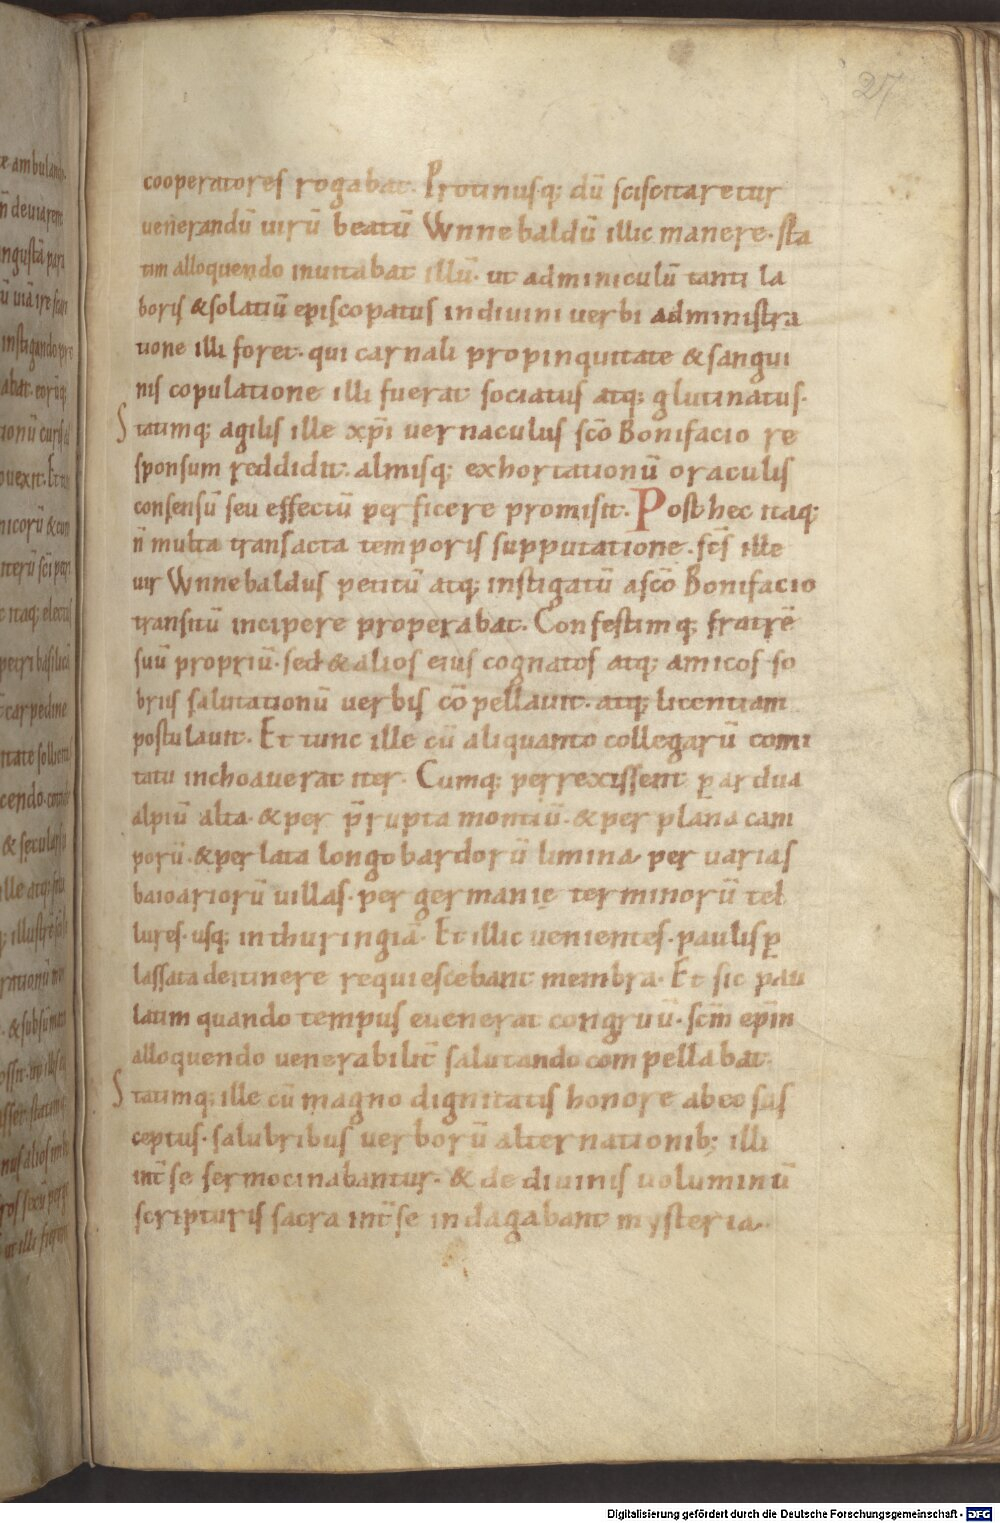 27
cooperatores rogabat. Protinusq; dū sciscitaretur
venerandū uirū beatū Wnnebaldū illic manere. sta
tim alloquendo inuitabat illū. ut adminiculū tanti la
boris & solatiū episcopatus in diuini uerbi administra
tione illi foret. qui carnali propinquitate & sangui
nis copulatione illi fuerat sociatus atq; glutinatus.
Statimq; agilis ille xp̄i uernaculus sc̄o Bonifacio re
sponsum reddidit. almisq; exhortationū oraculis
consensū seu effectū perficere promisit. Post hec itaq;
n̄ multa transacta temporis supputatione. sc̄s ille
uir Wnnebaldus petitū atq; instigatū a sc̄o Bonifacio
transitū incipere properabat. Confestimq; fratrē
suū propriū. sed & alios eius cognatos atq; amicos so
briis salutationū uerbis cōpellauit. atq; licentiam
postulauit. Et tunc ille cū aliquanto collegarū comi
tatu inchoauerat iter. Cumq; perrexissent p̱ ardua
alpiū alta. & per p̄rupta montiū. & per plana cam
porū. & per lata longobardorū limina per uarias
baioariorū uillas. per germanię terminorū tel
lures. usq; in thuringiā. Et illic uenientes. paulisp̱
lassata de itinere requiescebant membra. Et sic pau
latim quando tempus euenerat congruū. sc̄m ep̄m
alloquendo uenerabilit̄ salutando compellabat.
Statimq; ille cū magno dignitatis honore ab eo sus
ceptus. salubribus uerborū alternationib; illi
int̄ se sermocinabantur. & de diuinis uoluminū
scripturis sacra int̄ se indagabant mysteria.
Digitalisierung gefördert durch die Deutsche Forschungsgemeinschaft - DFG